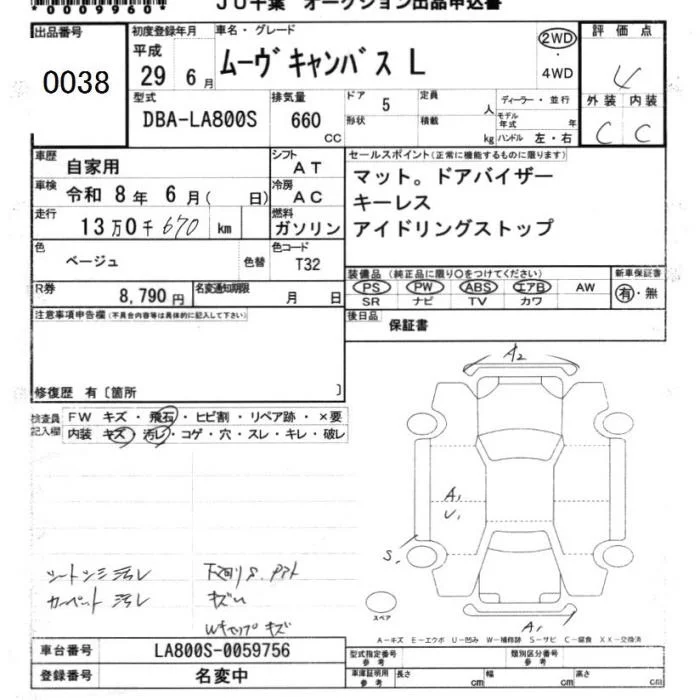 *0009960*
JU千葉 オークション出品申込書
出品番号
0038
初度登録年月
平成
29年 6月
車名・グレード
ムーヴキャンバス L
2WD
・4WD
評価点
4
外装 内装
C C
型式
DBA-LA800S
排気量
660
CC
ドア
5
定員
人
形状
積載
kg
ディーラー・並行
モデル年式
年
ハンドル 左・右
車歴
自家用
シフト
AT
車検
令和 8年 6月( 日)
冷房
AC
走行
13万0千670 km
燃料
ガソリン
色
ベージュ
色替
色コード
T32
R券
8,790円
名変通知期限
月 日
セールスポイント(正常に機能するものに限ります)
マット。ドアバイザー
キーレス
アイドリングストップ
装備品(純正品に限り○をつけてください)
PS PW ABS エアB AW
SR ナビ TV カワ
新車保証書
有・無
注意事項申告欄(不具合内容等は具体的に記入して下さい)
後日品
保証書
修復歴 有〔箇所 〕
検査員記入欄
FW キズ・飛石・ヒビ割・リペア跡・×要
内装 キズ・汚レ・コゲ・穴・スレ・キレ・破レ
A2
A1
U1
S1
シートシミ汚レ
カーペット汚レ
下回りS.
キズU
Wキャップキズ
スペア
A1
A-キズ E-エクボ U-凹み W-補修跡 S-サビ C-腐食 XX-交換済
車台番号
LA800S-0059756
登録番号
名変中
型式指定番号
参考
類別区分番号
参考
車庫証明用
参考
長さ
cm
幅
cm
高さ
cm